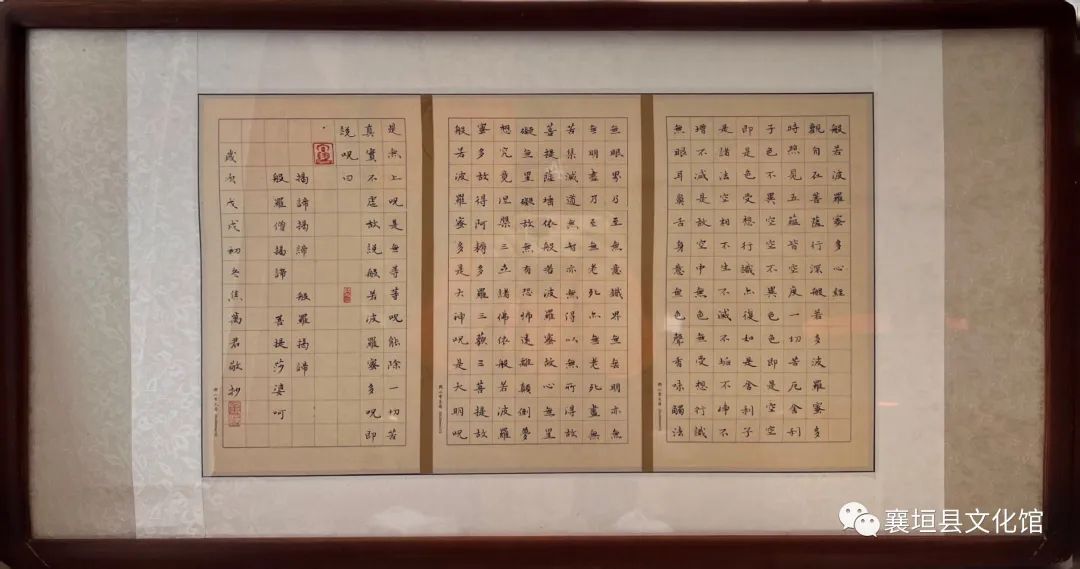 般若波羅蜜多心經
觀自在菩薩行深般若多波羅蜜多
時照見五蘊皆空度一切苦厄舍利
子色不異空空不異色色即是空空
即是色受想行識亦復如是舍利子
是諸法空相不生不滅不垢不淨不
增不減是故空中無色無受想行識
無眼耳鼻舌身意無色聲香味觸法
無眼界乃至無意識界無無明亦無
無明盡乃至無老死亦無老死盡無
苦集滅道無智亦無得以無所得故
菩提薩埵依般若波羅蜜故心無罣
礙無罣礙故無有恐怖遠離顛倒夢
想究竟涅槃三世諸佛依般若波羅
蜜多故得阿耨多羅三藐三菩提故
般若波羅蜜多是大神呪是大明呪
是無上呪是無等等呪能除一切苦
真實不虛故說般若波羅蜜多呪即
說呪曰
揭諦揭諦 般羅揭諦
般羅僧揭諦 菩提莎婆呵
歲次戊戌初冬焦萬君敬抄
襄垣县文化馆